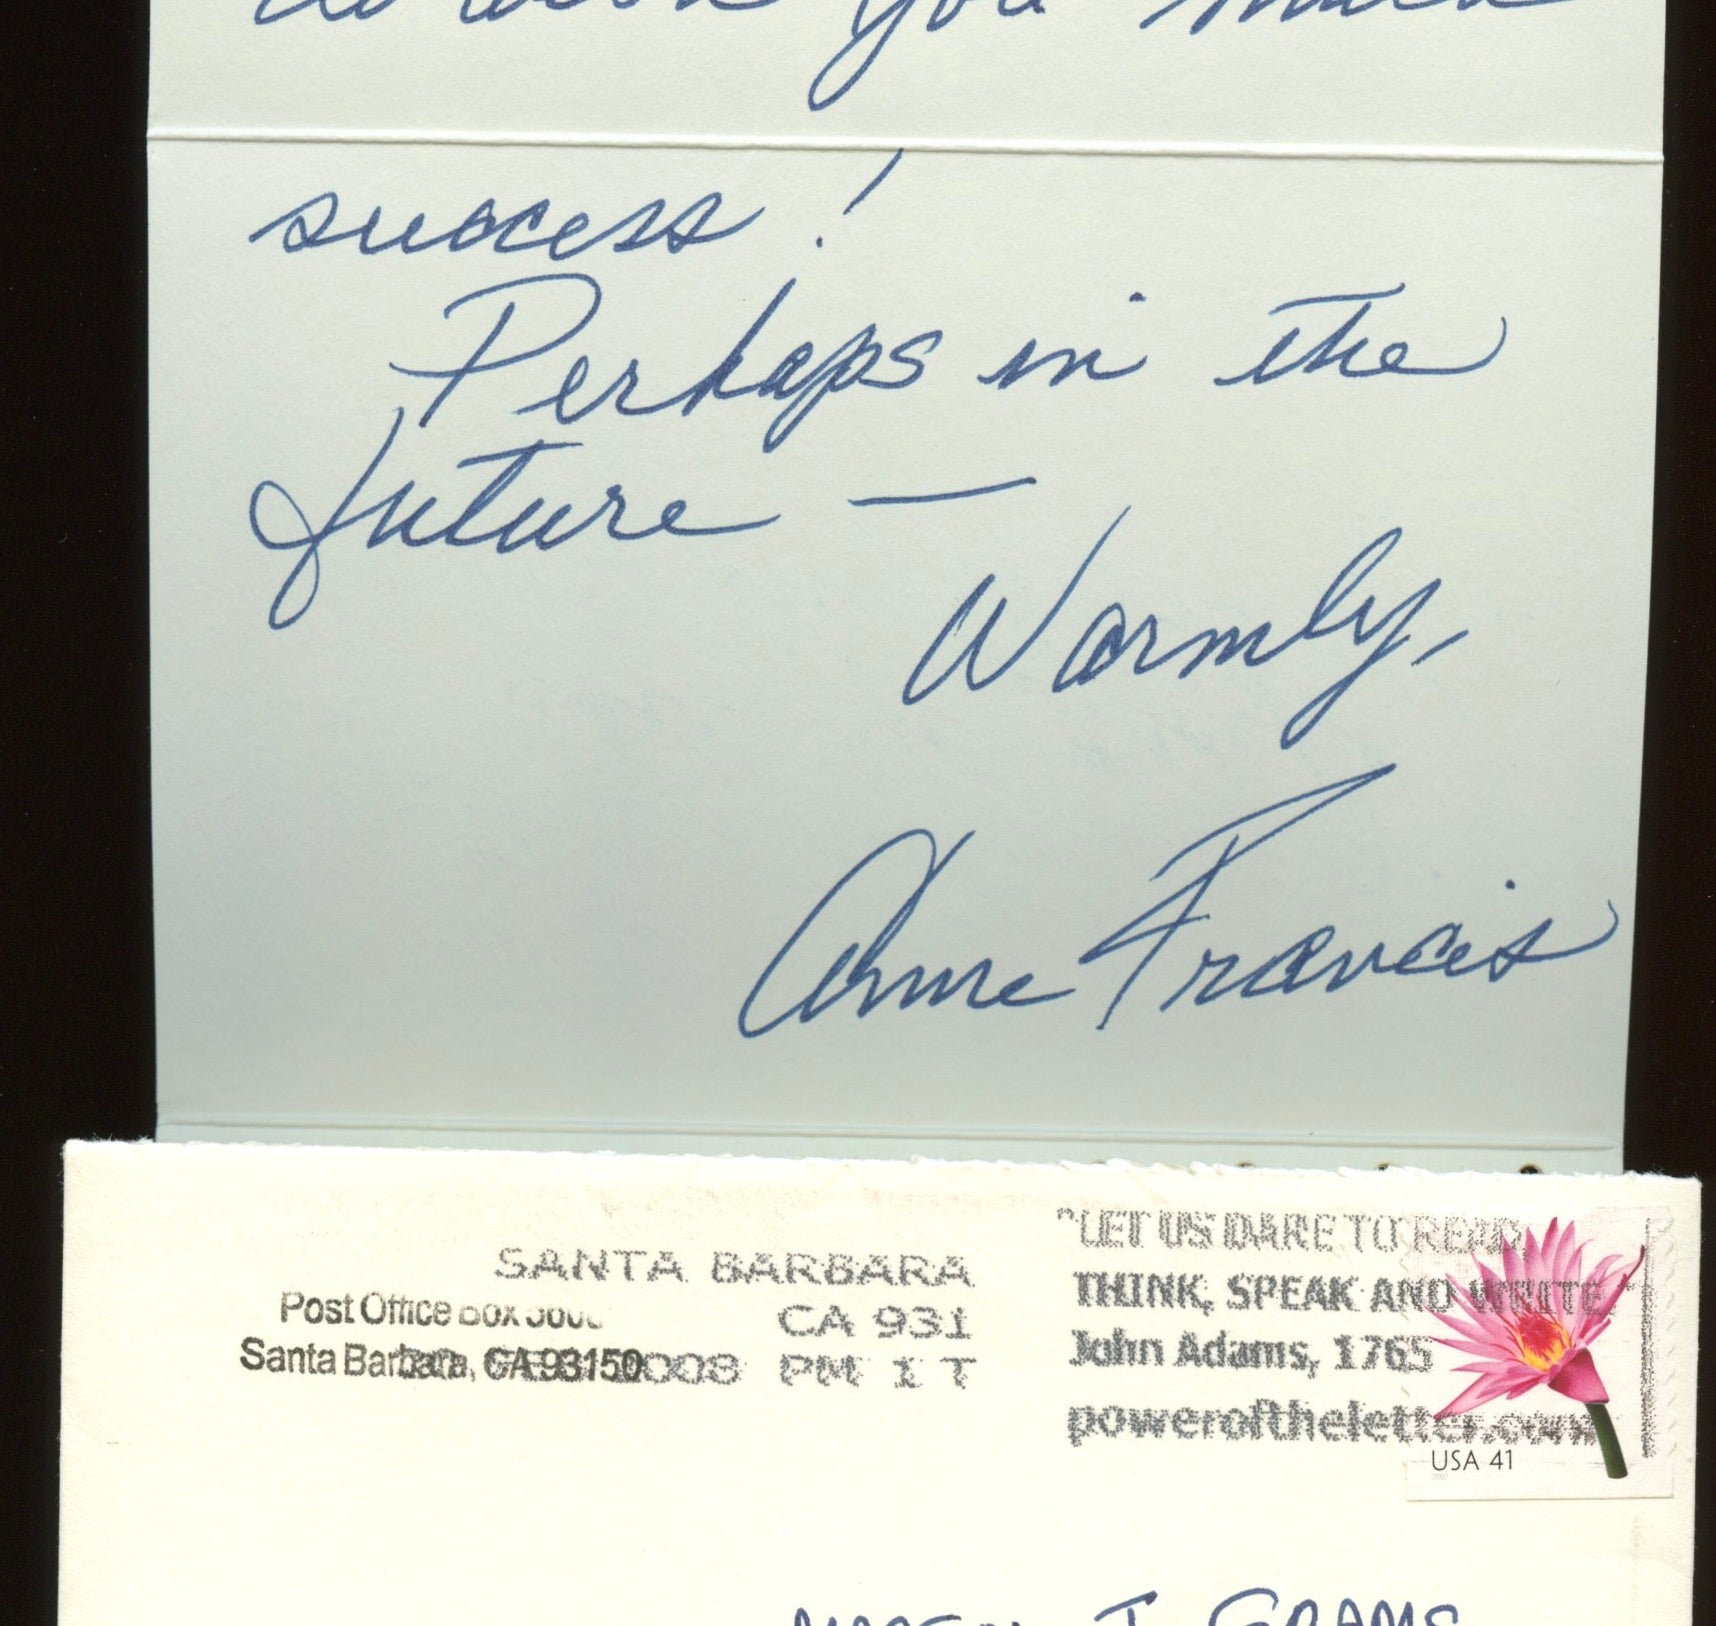 you much
success!
Perhaps in the
future —
Warmly,
Anne Francis
SANTA BARBARA
CA 931
2008 PM 1 T
Post Office Box
Santa Barbara, CA 93150
"LET US DARE TO READ,
THINK, SPEAK AND WRITE."
John Adams, 1765
poweroftheletter.com
USA 41
2007
J. GRAMS